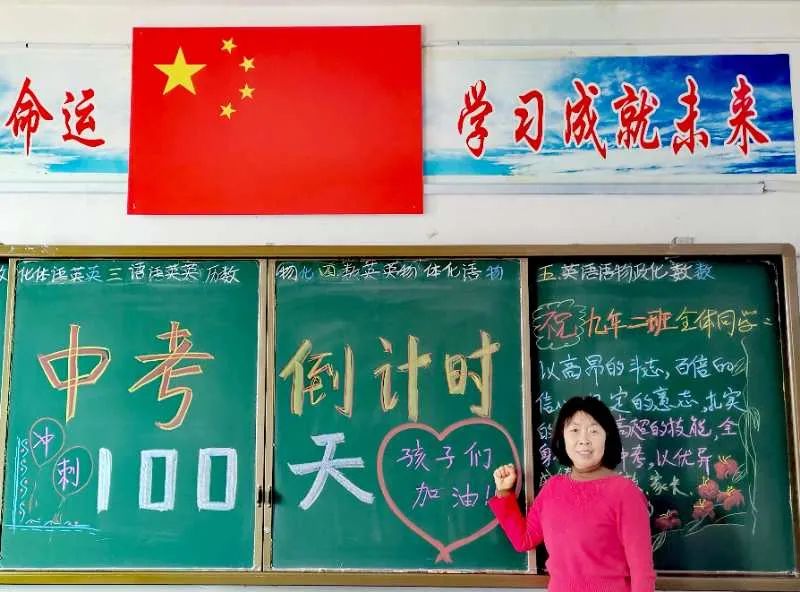 命运
学习成就未来
化体语英英 三 语语英英历数
物化 四 数英英物体化语物
五 英语语物政化数数
中考倒计时
100天
冲刺
孩子们
加油！
祝九年二班全体同学：
以高昂的斗志，百倍的
定的意志，扎实
的技能，全
中考，以优异